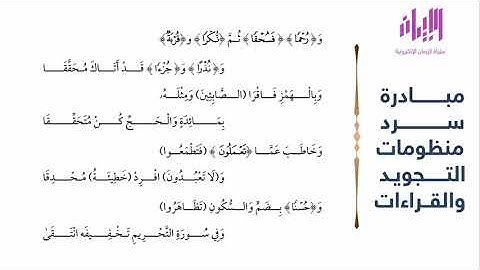 الإيمان
مبادرة
سرد
منظومات
التجويد
والقراءات
وَ﴿رُحْمًا﴾ ﴿فَسُحْقًا﴾ ثُمَّ ﴿نُكْرًا﴾ و﴿قُرْبَةٌ﴾
وَ﴿نُذْرًا﴾ وَ﴿جُزْءًا﴾ قَدْ أَتَاكَ مُحَقَّقَا
وَبِالْهَمْزِ فَاقْرَا (الصَّابِئِينَ) وَمِثْلَهُ،
بِمَائِدَةٍ وَالْحَجِّ كُنْ مُتَحَقِّقَا
وَخَاطَبَ عَمَّا ﴿تَعْمَلُونَ﴾ (فَتَطْمَعُوا)
وَ(لَا تَعْبُدُونَ) افْرِدْ (خَطِيئَةُ) مُحْدِقَا
وَ﴿حُسْنًا﴾ بِضَمٍّ وَالسُّكُونِ (تَظَاهَرُوا)
وَفِي سُورَةِ التَّحْرِيمِ تَخْفِيفَهُ انْتَقَىٰ